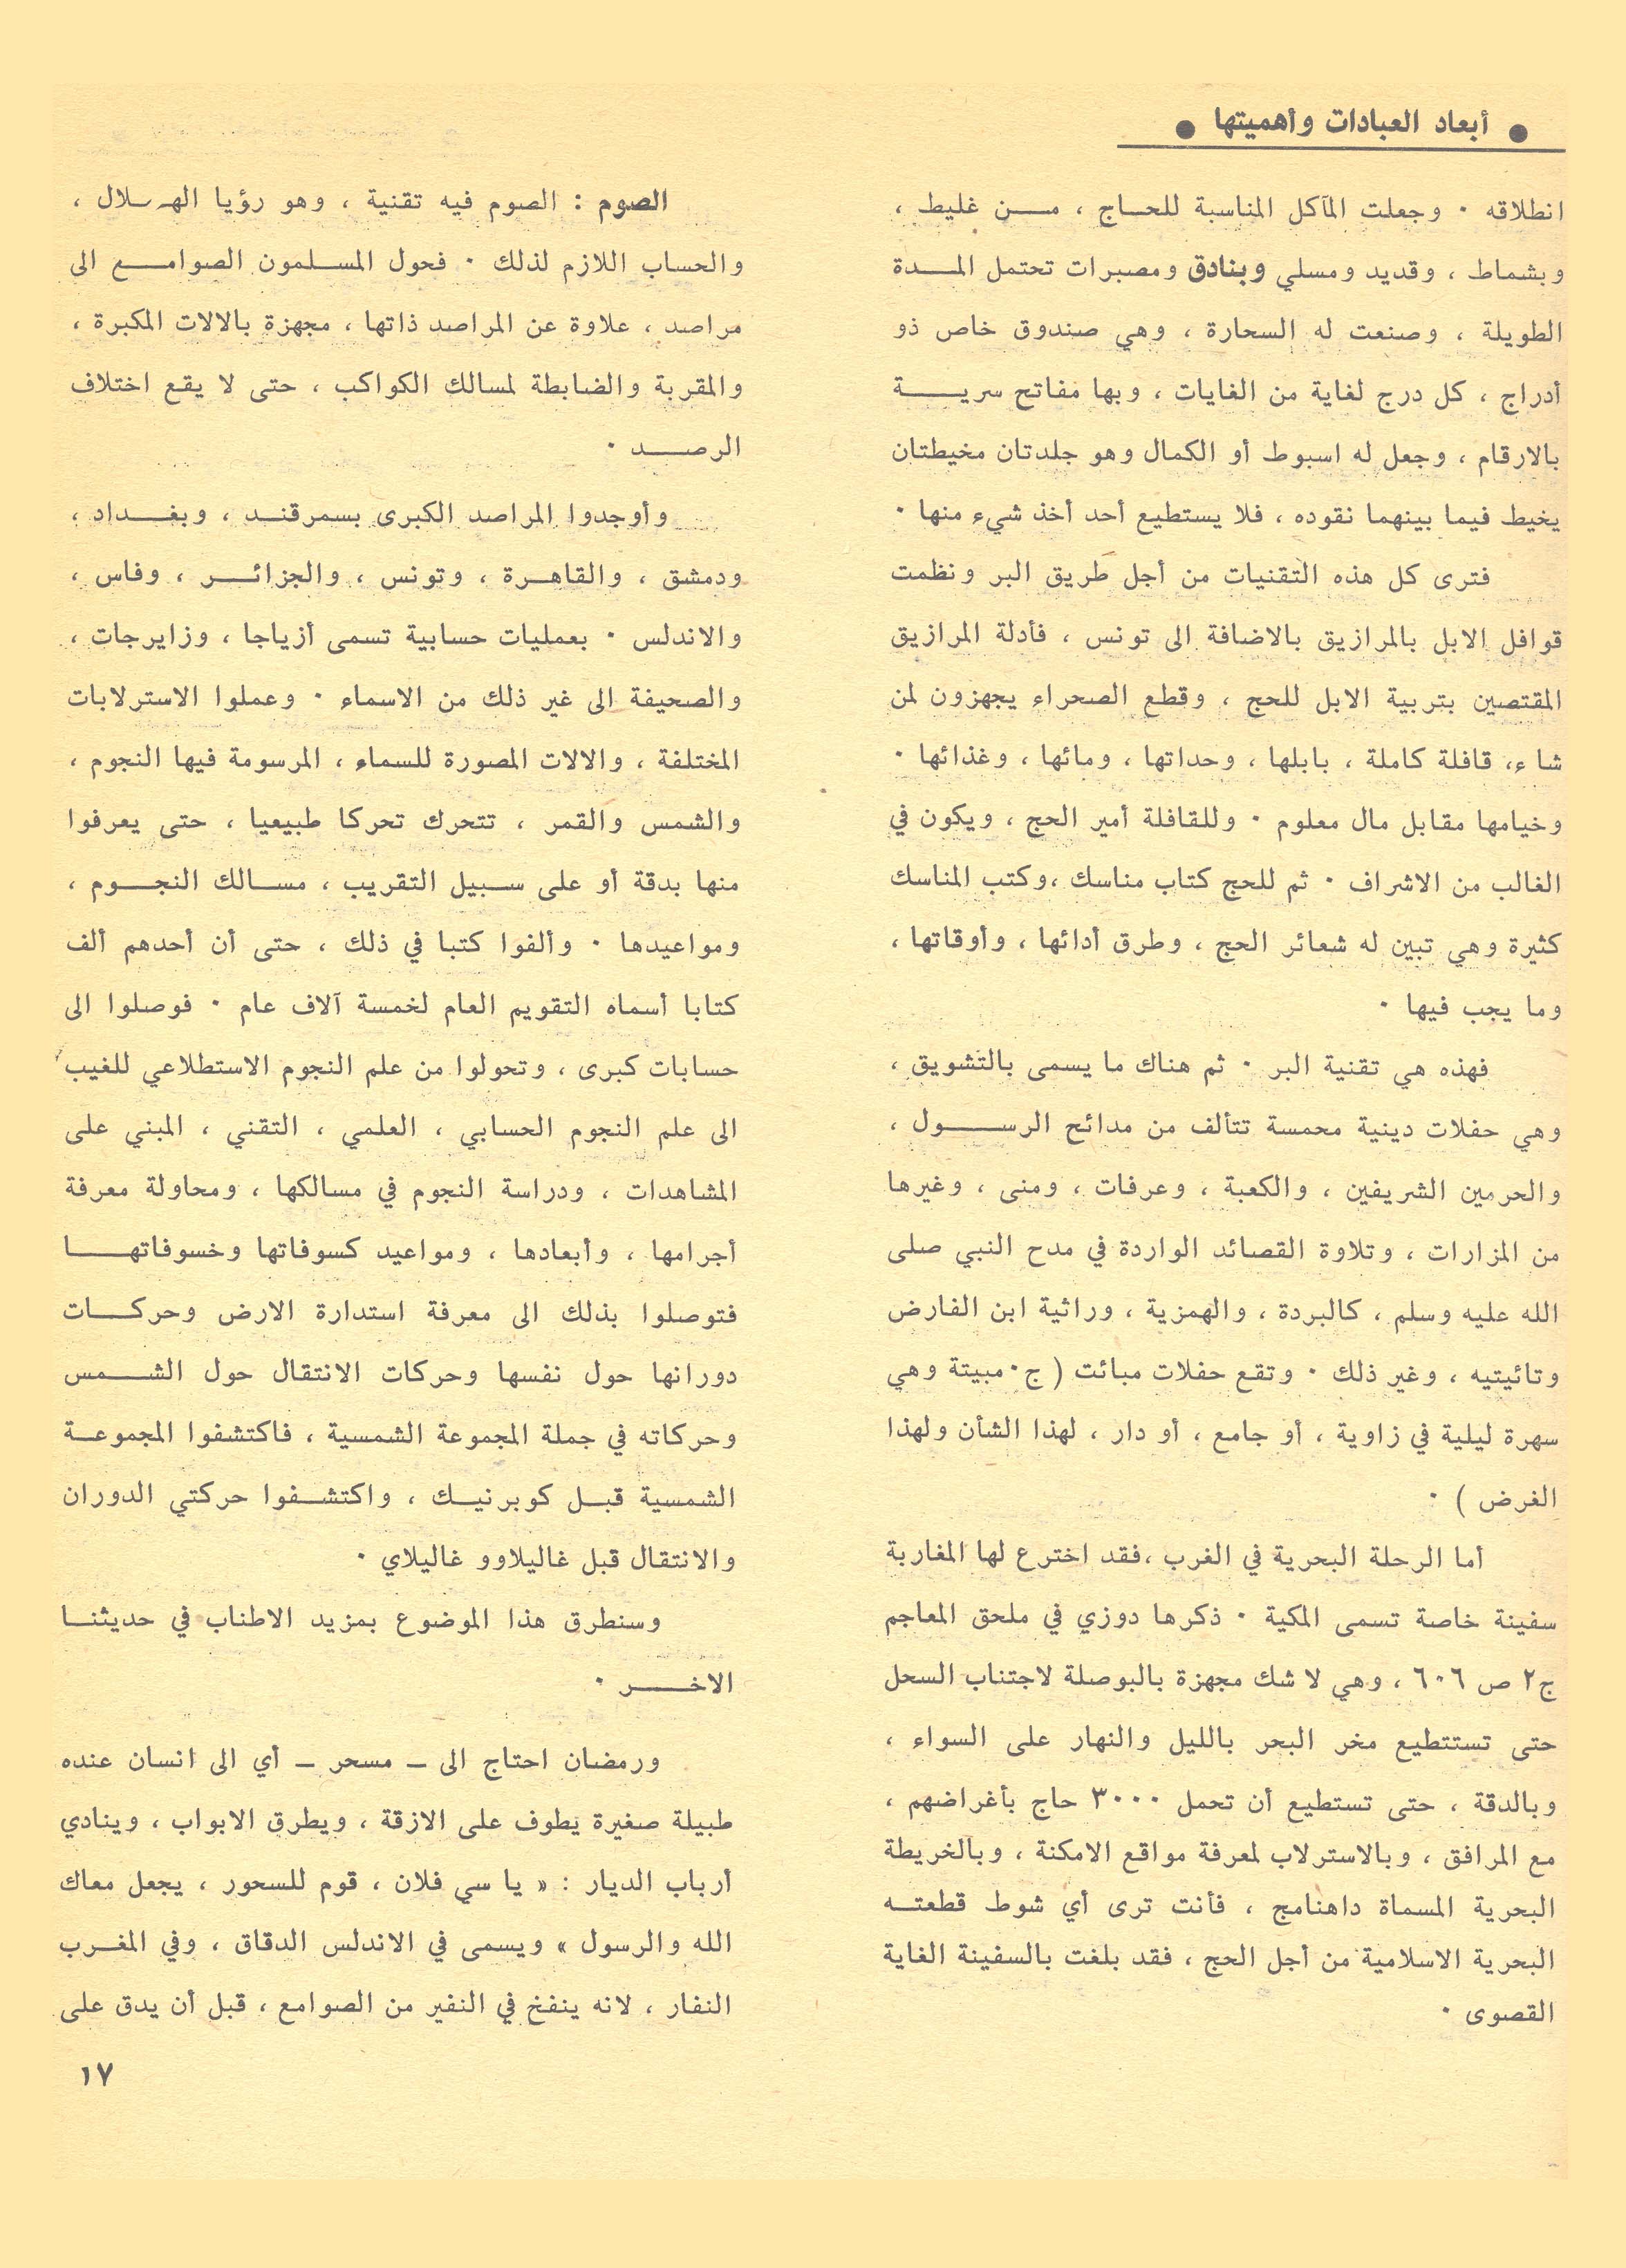 ● أبعاد العبادات وأهميتها ●
انطلاقه ٠ وجعلت المآكل المناسبة للحاج ، من غليط ،
وبشماط ، وقديد ومسلي وبنادق ومصبرات تحتمل المدة
الطويلة ، وصنعت له السحارة ، وهي صندوق خاص ذو
أدراج ، كل درج لغاية من الغايات ، وبها مفاتح سرية
بالارقام ، وجعل له اسبوط أو الكمال وهو جلدتان مخيطتان
يخيط فيما بينهما نقوده ، فلا يستطيع أحد أخذ شيء منها ٠
فترى كل هذه التقنيات من أجل طريق البر ونظمت
قوافل الابل بالمرازيق بالاضافة الى تونس ، فأدلة المرازيق
المقتصين بتربية الابل للحج ، وقطع الصحراء يجهزون لمن
شاء، قافلة كاملة ، بابلها ، وحداتها ، ومائها ، وغذائها ٠
وخيامها مقابل مال معلوم ٠ وللقافلة أمير الحج ، ويكون في
الغالب من الاشراف ٠ ثم للحج كتاب مناسك ،وكتب المناسك
كثيرة وهي تبين له شعائر الحج ، وطرق أدائها ، وأوقاتها ،
وما يجب فيها ٠
فهذه هي تقنية البر ٠ ثم هناك ما يسمى بالتشويق ،
وهي حفلات دينية محمسة تتألف من مدائح الرسول ،
والحرمين الشريفين ، والكعبة ، وعرفات ، ومنى ، وغيرها
من المزارات ، وتلاوة القصائد الواردة في مدح النبي صلى
الله عليه وسلم ، كالبردة ، والهمزية ، ورائية ابن الفارض
وتائيتيه ، وغير ذلك ٠ وتقع حفلات مبائت ( ج٠ مبيتة وهي
سهرة ليلية في زاوية ، أو جامع ، أو دار ، لهذا الشأن ولهذا
الغرض ) ٠
أما الرحلة البحرية في الغرب ،فقد اخترع لها المغاربة
سفينة خاصة تسمى المكية ٠ ذكرها دوزي في ملحق المعاجم
ج٢ ص ٦٠٦ ، وهي لا شك مجهزة بالبوصلة لاجتناب السحل
حتى تستتطيع مخر البحر بالليل والنهار على السواء ،
وبالدقة ، حتى تستطيع أن تحمل ٣٠٠٠ حاج بأغراضهم ،
مع المرافق ، وبالاسترلاب لمعرفة مواقع الامكنة ، وبالخريطة
البحرية المسماة داهنامج ، فأنت ترى أي شوط قطعته
البحرية الاسلامية من أجل الحج ، فقد بلغت بالسفينة الغاية
القصوى ٠
الصوم : الصوم فيه تقنية ، وهو رؤيا الهلال ،
والحساب اللازم لذلك ٠ فحول المسلمون الصوامع الى
مراصد ، علاوة عن المراصد ذاتها ، مجهزة بالالات المكبرة ،
والمقربة والضابطة لمسالك الكواكب ، حتى لا يقع اختلاف
الرصد ٠
وأوجدوا المراصد الكبرى بسمرقند ، وبغداد ،
ودمشق ، والقاهرة ، وتونس ، والجزائر ، وفاس ،
والاندلس ٠ بعمليات حسابية تسمى أزياجا ، وزايرجات ،
والصحيفة الى غير ذلك من الاسماء ٠ وعملوا الاسترلابات
المختلفة ، والالات المصورة للسماء ، المرسومة فيها النجوم ،
والشمس والقمر ، تتحرك تحركا طبيعيا ، حتى يعرفوا
منها بدقة أو على سبيل التقريب ، مسالك النجوم ،
ومواعيدها ٠ وألفوا كتبا في ذلك ، حتى أن أحدهم ألف
كتابا أسماه التقويم العام لخمسة آلاف عام ٠ فوصلوا الى
حسابات كبرى ، وتحولوا من علم النجوم الاستطلاعي للغيب
الى علم النجوم الحسابي ، العلمي ، التقني ، المبني على
المشاهدات ، ودراسة النجوم في مسالكها ، ومحاولة معرفة
أجرامها ، وأبعادها ، ومواعيد كسوفاتها وخسوفاتها
فتوصلوا بذلك الى معرفة استدارة الارض وحركات
دورانها حول نفسها وحركات الانتقال حول الشمس
وحركاته في جملة المجموعة الشمسية ، فاكتشفوا المجموعة
الشمسية قبل كوبرنيك ، واكتشفوا حركتي الدوران
والانتقال قبل غاليلاوو غاليلاي ٠
وسنطرق هذا الموضوع بمزيد الاطناب في حديثنا
الاخر ٠
ورمضان احتاج الى ـ مسحر ـ أي الى انسان عنده
طبيلة صغيرة يطوف على الازقة ، ويطرق الابواب ، وينادي
أرباب الديار : « يا سي فلان ، قوم للسحور ، يجعل معاك
الله والرسول » ويسمى في الاندلس الدقاق ، وفي المغرب
النفار ، لانه ينفخ في النفير من الصوامع ، قبل أن يدق على
١٧